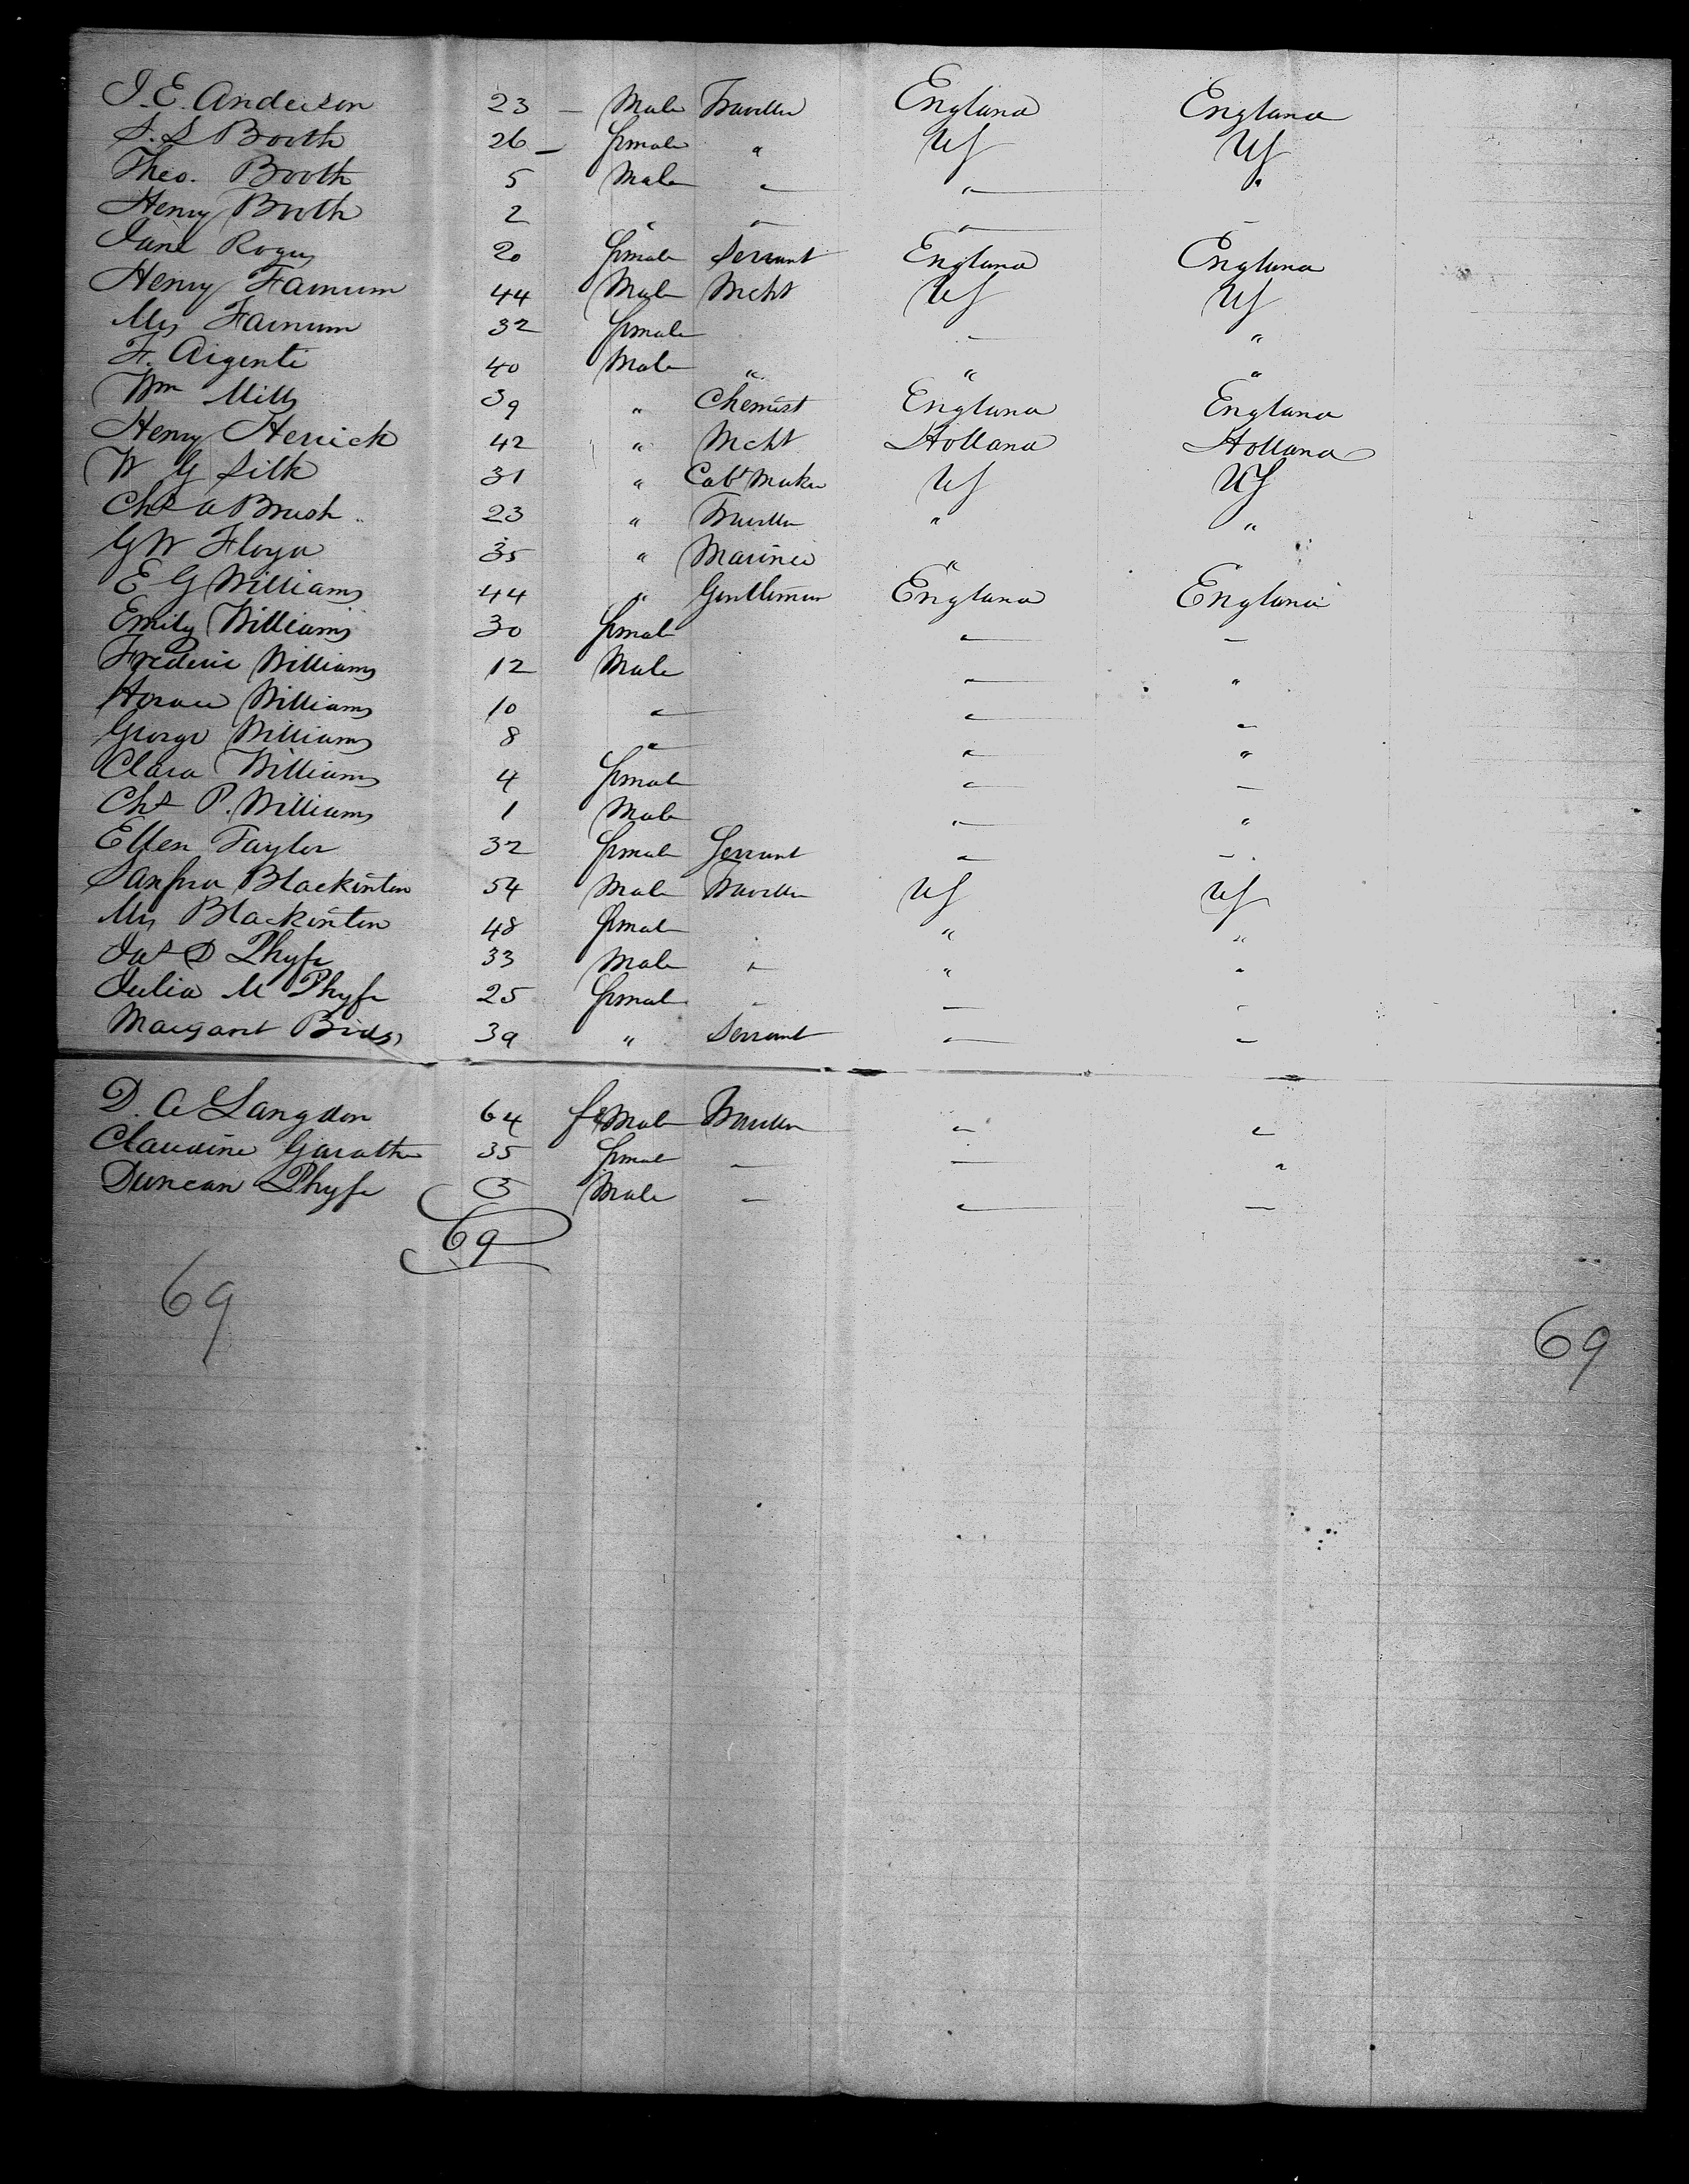 J. E. Anderson 23 — Male Traveller England England
S. S Booth 26 — female " US US
Theo. Booth 5 Male " " "
Henry Booth 2 " " " "
Jane Rogers 20 female Servant England England
Henry Farnum 44 Male Mcht US US
Mrs Farnum 32 female " "
F. Argenti 40 Male " " "
Wm Mills 39 " Chemist England England
Henry Herrick 42 " Mcht Holland Holland
W G Silk 31 " Cabt Maker US US
Chs A Brush 23 " Traveller " "
G W Floyd 35 " Mariner " "
E G Williams 44 " Gentleman England England
Emily Williams 30 female " "
Frederic Williams 12 Male " "
Horace Williams 10 " " "
George Williams 8 " " "
Clara Williams 4 female " "
Chs P. Williams 1 Male " "
Ellen Taylor 32 female Servant " "
Blackinton 54 Male Traveller US US
Mrs Blackinton 48 female " "
Jas D Phyfe 33 Male " " "
Julia M Phyfe 25 female " " "
Margaret 39 " Servant " "
D. A Langdon 64 feMale Traveller " "
Claudine 35 female " " "
Duncan Phyfe 3 Male " " "
69
69
69